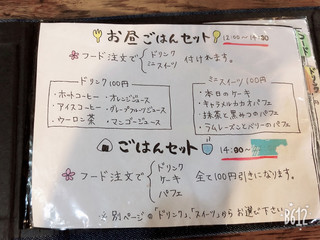 お昼ごはんセット 12:00～14:30
フード注文で{ドリンク ミニスイーツ 付けれます。
ドリンク100円
・ホットコーヒー ・オレンジジュース
・アイスコーヒー ・グレープフルーツジュース
・ウーロン茶 ・マンゴージュース
ミニスイーツ 100円
・本日のケーキ
・キャラメルカカオパフェ
・抹茶と黒みつのパフェ
・ラムレーズンとベリーのパフェ
ごはんセット 14:00～
フード注文で{ドリンク ケーキ パフェ 全て100円引きになります。
※別ページの「ドリンク」、「スイーツ」からお選び下さい。
B612